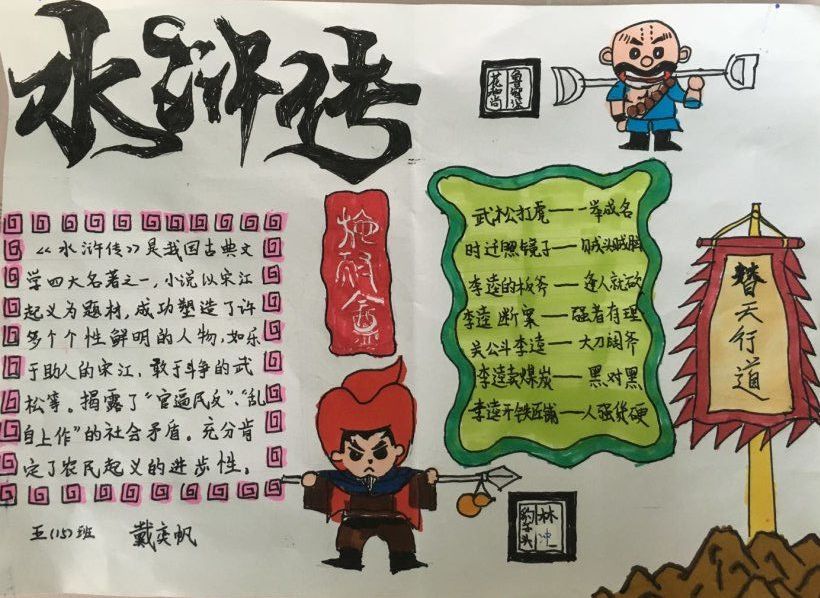 水浒传
鲁智深
花和尚
《水浒传》是我国古典文
学四大名著之一，小说以宋江
起义为题材，成功塑造了许
多个个性鲜明的人物，如乐
于助人的宋江，敢于斗争的武
松等。揭露了“官逼民反”、“乱
自上作”的社会矛盾。充分肯
定了农民起义的进步性。
五(15)班 戴奕帆
施耐
武松打虎——一举成名
时迁照镜子——贼头贼脑
李逵的板斧——逢人就砍
李逵断案——强者有理
关公斗李逵——大刀阔斧
李逵卖煤炭——黑对黑
李逵开铁匠铺——人强货硬
替天行道
林冲
豹子头